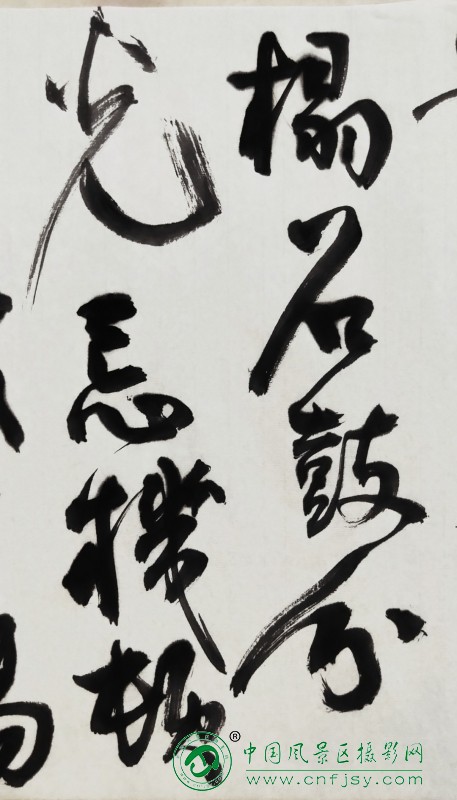 榻石鼓分
光忘機
中国风景区摄影网
www.cnfjsy.com
®